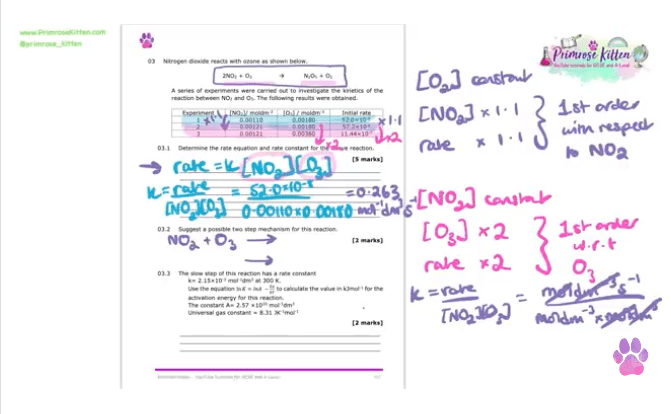 www.PrimroseKitten.com
@primrose_kitten
03 Nitrogen dioxide reacts with ozone as shown below.
2NO₂ + O₃ → N₂O₅ + O₂
A series of experiments were carried out to investigate the kinetics of the
reaction between NO₂ and O₃. The following results were obtained.
Experiment [NO₂]/ moldm⁻³ [O₃] / moldm⁻³ Initial rate
1 0.00110 0.00180 52.0×10⁻⁸
2 0.00121 0.00180 57.2×10⁻⁸
3 0.00121 0.00360 11.44×10⁻⁷
×1.1
×1.1
×2
×2
03.1 Determine the rate equation and rate constant for the above reaction.
[5 marks]
→ rate = k[NO₂][O₃]
k = rate = 52.0×10⁻⁸ = 0.263
[NO₂][O₃] 0.00110×0.00180 mol⁻¹dm³s⁻¹
03.2 Suggest a possible two step mechanism for this reaction.
[2 marks]
NO₂ + O₃ →
→
03.3 The slow step of this reaction has a rate constant
Use the equation to calculate the value in kJmol⁻¹ for the
activation energy for this reaction.
The constant A= 2.57 ×10¹⁰ mol⁻¹dm³
Universal gas constant = 8.31 JK⁻¹mol⁻¹
[2 marks]
Primrose Kitten
YouTube tutorials for GCSE and A-Level
[O₃] constant
[NO₂] × 1.1
rate × 1.1
1st order
with respect
to NO₂
[NO₂] constant
[O₃] ×2
rate ×2
1st order
w.r.t
O₃
k = rate = moldm⁻³s⁻¹
[NO₂][O₃] moldm⁻³ × moldm⁻³